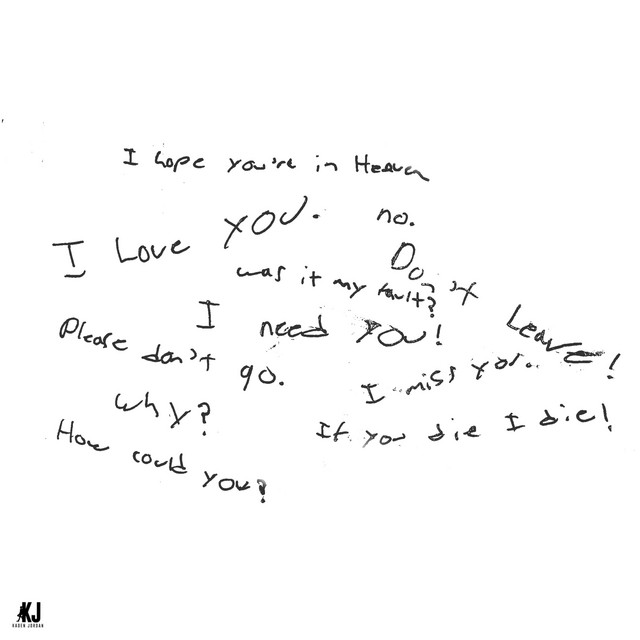 I hope you're in Heaven
I Love you.
no.
Don't Leave!
was it my fault?
I need you!
Please don't go.
I miss you.
why?
If you die I die!
How could you?
KJ
KADEN JORDAN